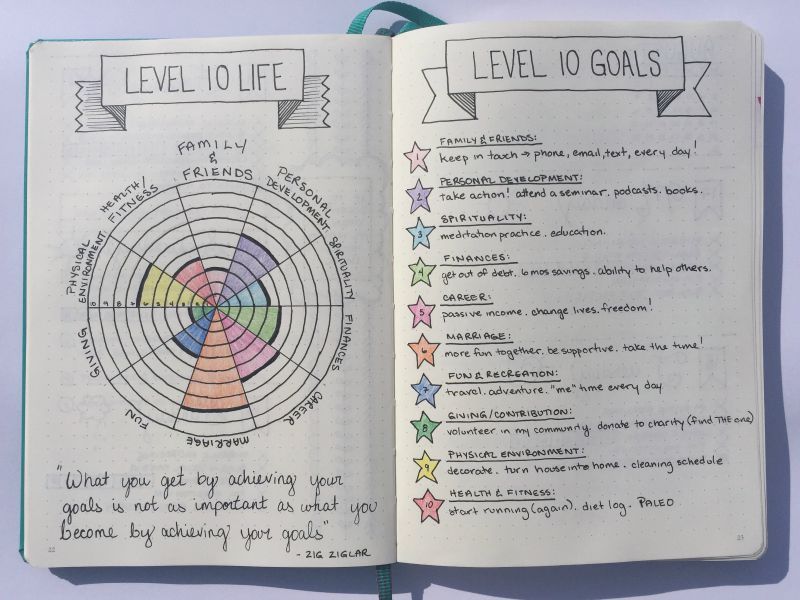 LEVEL 10 LIFE
FAMILY
&
FRIENDS
PERSONAL
DEVELOPMENT
SPIRITUALITY
FINANCES
CAREER
MARRIAGE
FUN
GIVING
PHYSICAL
ENVIRONMENT
HEALTH/
FITNESS
"What you get by achieving your
goals is not as important as what you
become by achieving your goals"
- ZIG ZIGLAR
22
LEVEL 10 GOALS
1 FAMILY & FRIENDS:
keep in touch → phone, email, text, every day!
2 PERSONAL DEVELOPMENT:
take action! attend a seminar. podcasts. books.
3 SPIRITUALITY:
meditation practice. education.
4 FINANCES:
get out of debt. 6 mos savings. ability to help others.
5 CAREER:
passive income. change lives. freedom!
6 MARRIAGE:
more fun together. be supportive. take the time!
7 FUN & RECREATION:
travel. adventure. "me" time every day
8 GIVING/CONTRIBUTION:
volunteer in my community. donate to charity (find THE one)
9 PHYSICAL ENVIRONMENT:
decorate. turn house into home. cleaning schedule
10 HEALTH & FITNESS:
start running (again). diet log. PALEO
23